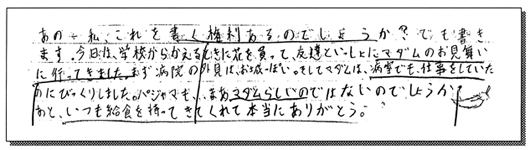 あの…私、これを書く権利あるのでしょうか？でも書き
ます。今日は、学校からかえるときに花を買って、友達といっしょにマダムのお見舞い
に行ってきました。まず病院の外見は、お城っぽい。そしてマダムは、病室でも、仕事をしていた
のにびっくりしました。パジャマも、、まあマダムらしいのではないのでしょうか
あと、いつも給食を持ってきてくれて本当にありがとう。